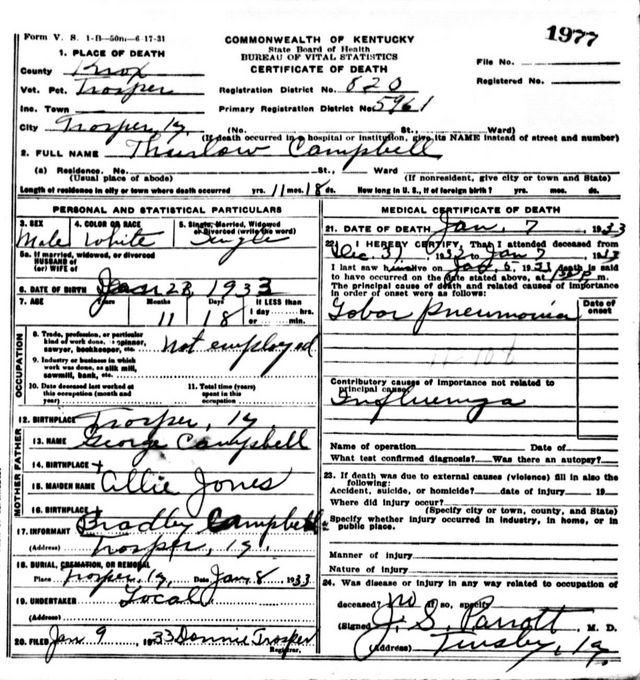 Form V. S. 1-B—50m—6-17-31
1977
COMMONWEALTH OF KENTUCKY
State Board of Health
BUREAU OF VITAL STATISTICS
CERTIFICATE OF DEATH
File No.
Registered No.
1. PLACE OF DEATH
County Knox
Vot. Pct. Trosper
Registration District No. 820
Inc. Town
Primary Registration District No. 5961
City Trosper Ky. (No. St., Ward)
(If death occurred in a hospital or institution, give its NAME instead of street and number)
2. FULL NAME Thurlow Campbell
(a) Residence. No. St., Ward
(Usual place of abode) (If nonresident, give city or town and State)
Length of residence in city or town where death occurred yrs. 11 mos. 18 ds. How long in U. S., if of foreign birth? yrs. mos. ds.
PERSONAL AND STATISTICAL PARTICULARS
3. SEX Male
4. COLOR OR RACE White
5. Single, Married, Widowed or Divorced (write the word) Single
5a. If married, widowed, or divorced
HUSBAND of
(or) WIFE of
6. DATE OF BIRTH Jan 23, 1933
7. AGE Years Months 11 Days 18 If LESS than 1 day hrs. or min.
OCCUPATION
8. Trade, profession, or particular kind of work done, spinner, sawyer, bookkeeper, etc. Not employed
9. Industry or business in which work was done, as silk mill, sawmill, bank, etc.
10. Date deceased last worked at this occupation (month and year)
11. Total time (years) spent in this occupation
12. BIRTHPLACE Trosper, Ky
MOTHER FATHER
13. NAME George Campbell
14. BIRTHPLACE
15. MAIDEN NAME Allie Jones
16. BIRTHPLACE
17. INFORMANT Bradley Campbell
(Address) Trosper, Ky.
18. BURIAL, CREMATION, OR REMOVAL
Place Trosper, Ky. Date Jan 8 1933
19. UNDERTAKER Local
(Address)
20. FILED Jan 9 1933 Donnie Trosper
Registrar.
MEDICAL CERTIFICATE OF DEATH
21. DATE OF DEATH Jan. 7, 1933
22. I HEREBY CERTIFY, That I attended deceased from
Dec. 31, 1932 to Jan 7 1933
I last saw h alive on Jan. 6, 1931 death is said
to have occurred on the date stated above, at
The principal cause of death and related causes of importance
in order of onset were as follows:
Date of onset
Lobar Pneumonia
Contributory causes of importance not related to
principal cause:
Influenza
Name of operation Date of
What test confirmed diagnosis? Was there an autopsy?
23. If death was due to external causes (violence) fill in also the
following:
Accident, suicide, or homicide? date of injury 19
Where did injury occur?
(Specify city or town, county, and State)
Specify whether injury occurred in industry, in home, or in
public place.
Manner of injury
Nature of injury
24. Was disease or injury in any way related to occupation of
deceased? no if so, specify
(Signed) J. S. Parrott M. D.
(Address) Tinsley, Ky.